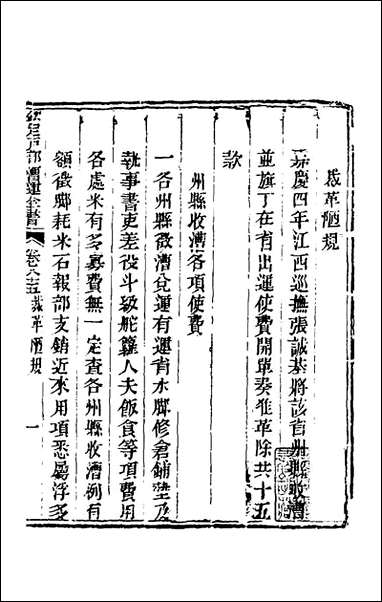 裁革陋規
嘉慶四年江西巡撫張誠基將該省州縣收漕
並旗丁在省出運使費開單奏准革除共十五
款
州縣收漕各項使費
一各州縣徵漕兌運有運省水腳修倉鋪墊及
執事書吏差役斗級舵籮人夫飯食等項費用
各處米有多寡費無一定查各州縣收漕例有
額徵腳耗米石報部支銷近來用項悉屬浮多
欽定戶部漕運全書
卷八十五裁革陋規
一